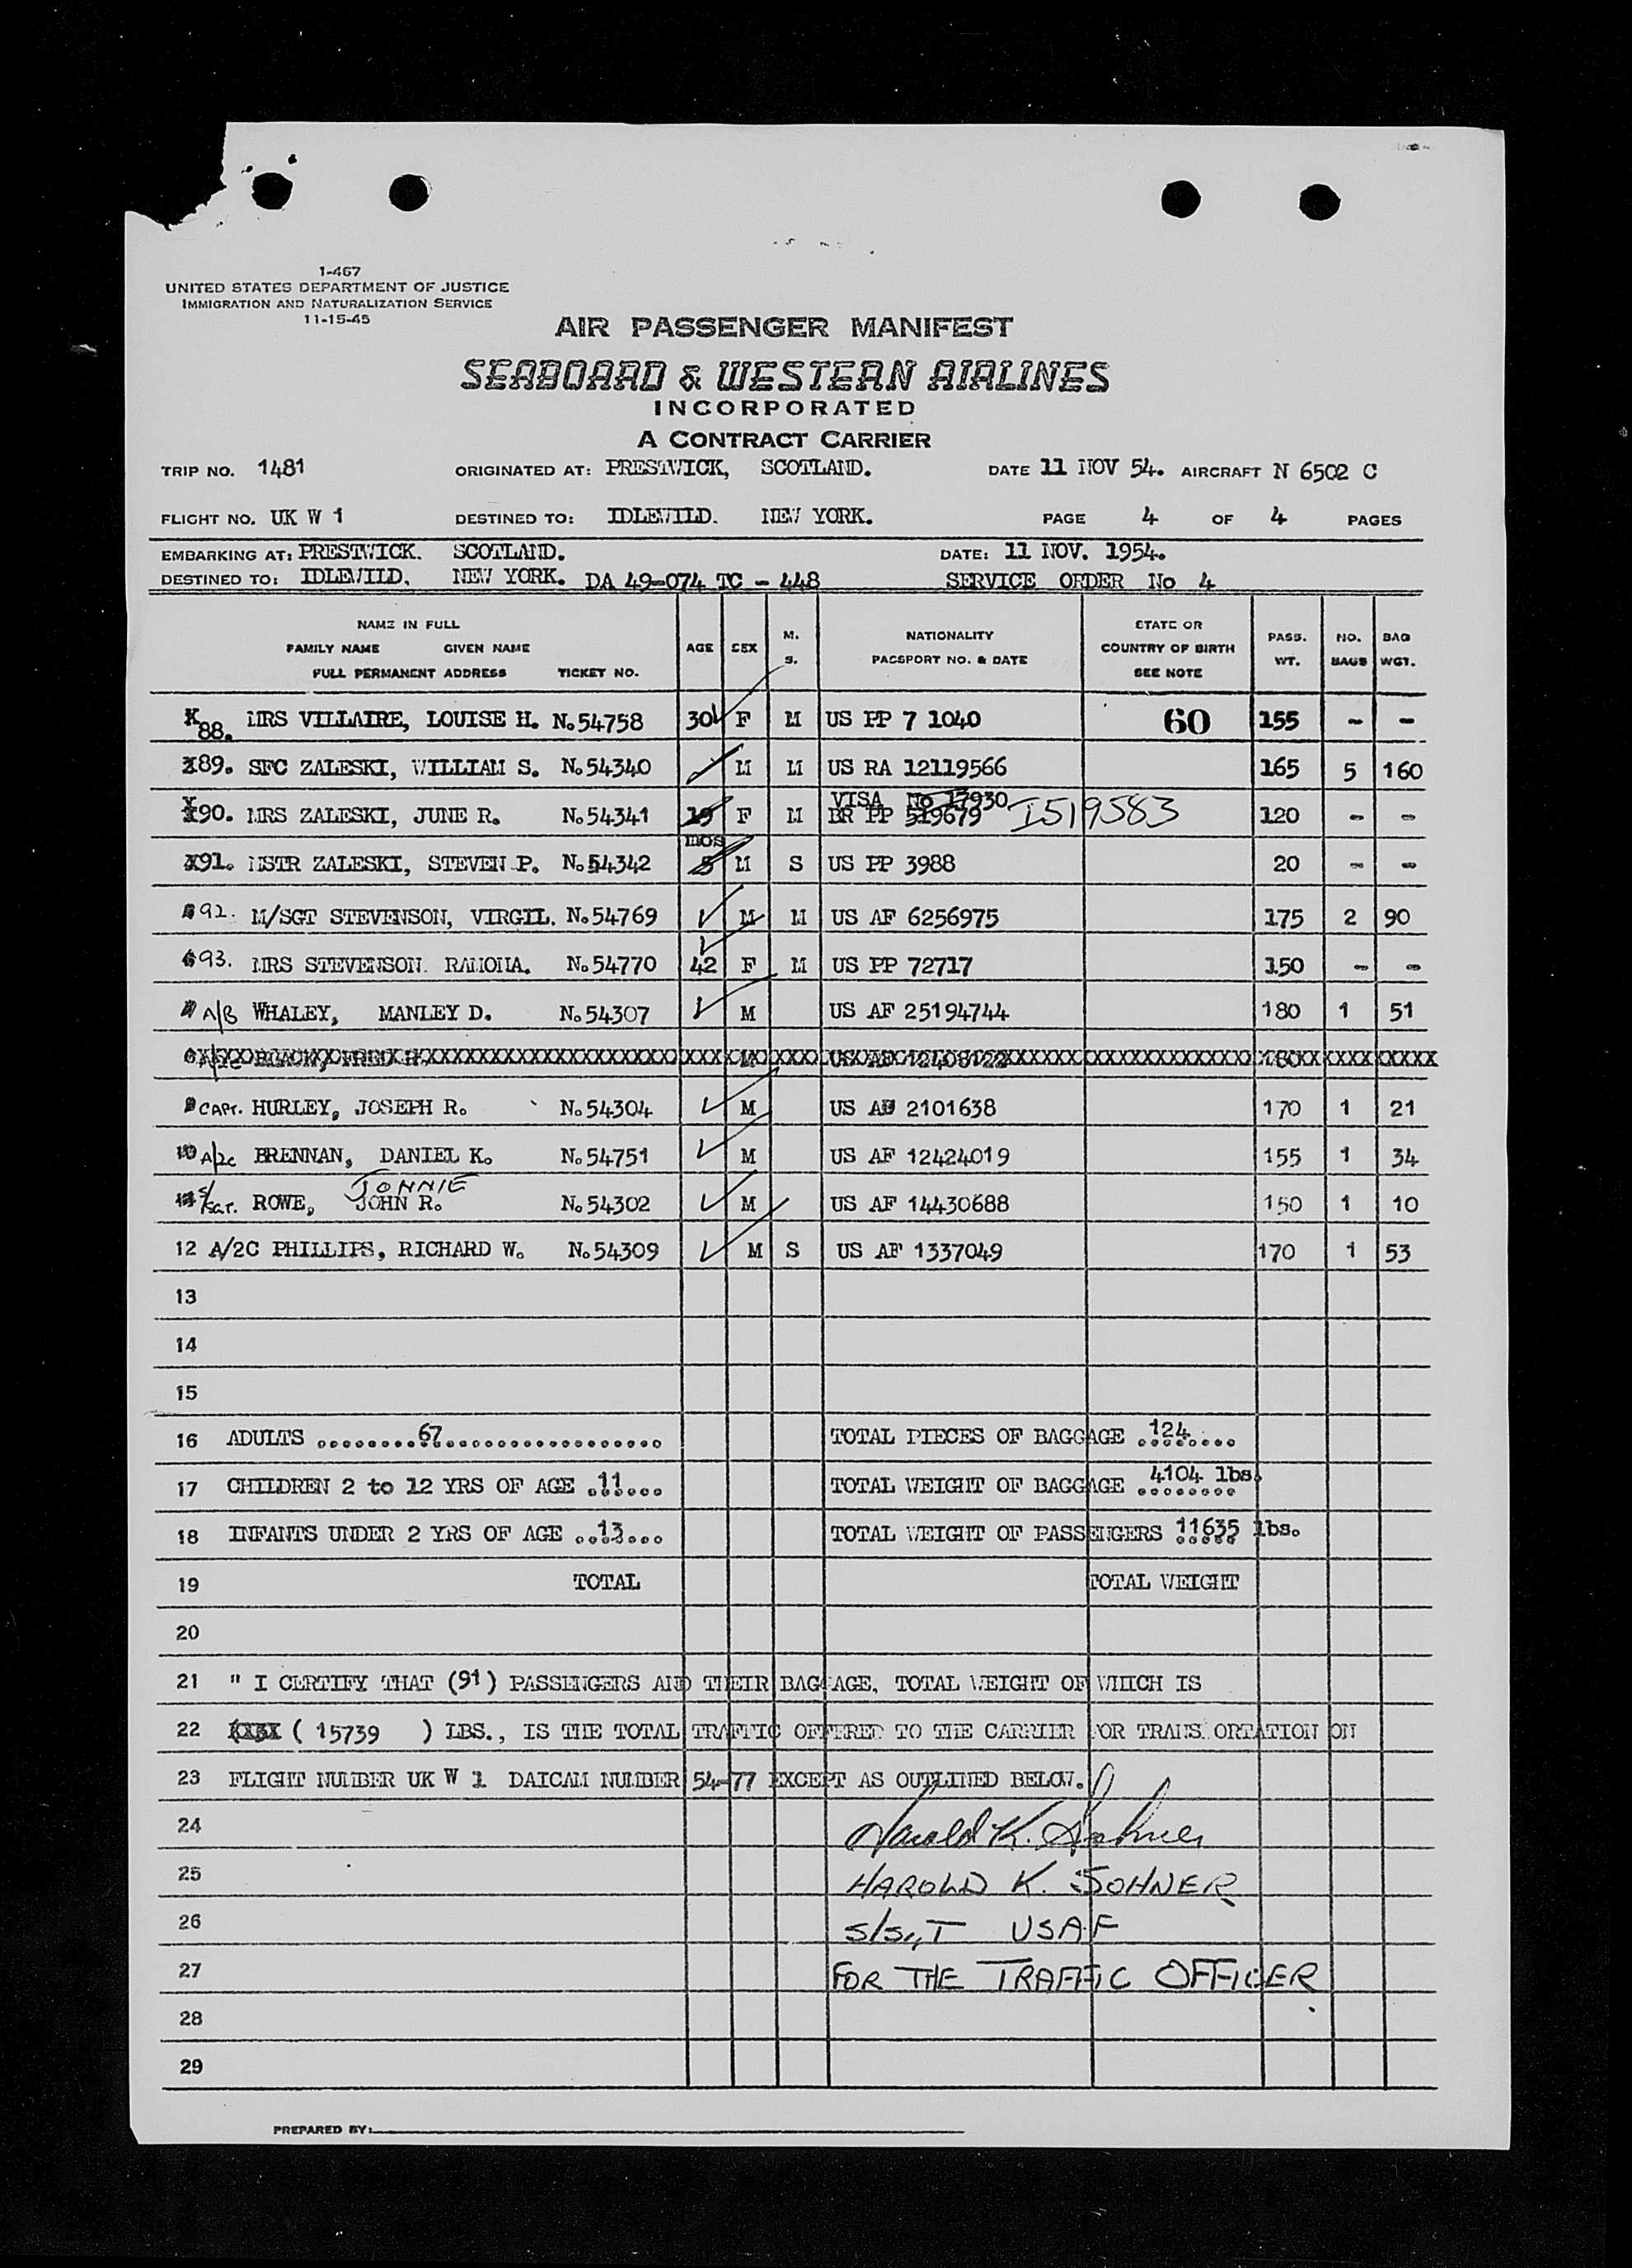 1-467
UNITED STATES DEPARTMENT OF JUSTICE
IMMIGRATION AND NATURALIZATION SERVICE
11-15-45
AIR PASSENGER MANIFEST
SEABOARD & WESTERN AIRLINES
INCORPORATED
A CONTRACT CARRIER
TRIP NO. 1481 ORIGINATED AT: PRESTWICK, SCOTLAND. DATE 11 NOV 54. AIRCRAFT N 6502 C
FLIGHT NO. UK W 1 DESTINED TO: IDLEWILD. NEW YORK. PAGE 4 OF 4 PAGES
EMBARKING AT: PRESTWICK. SCOTLAND. DATE: 11 NOV. 1954.
DESTINED TO: IDLEWILD, NEW YORK. DA 49-074 TC - 448 SERVICE ORDER No 4
NAME IN FULL
FAMILY NAME GIVEN NAME
FULL PERMANENT ADDRESS TICKET NO.
AGE SEX M. S.
NATIONALITY
PASSPORT NO. & DATE
STATE OR
COUNTRY OF BIRTH
SEE NOTE
PASS. WT.
NO. BAGS
BAG WGT.
88. MRS VILLAIRE, LOUISE H. No 54758 30 F M US PP 7 1040 60 155 - -
89. SFC ZALESKI, WILLIAM S. No 54340 M M US RA 12119566 165 5 160
VISA No 17930
90. MRS ZALESKI, JUNE R. No 54341 19 F M BR PP 519679 I519583 120 - -
mos
91. MSTR ZALESKI, STEVEN P. No 54342 5 M S US PP 3988 20 - -
92. M/SGT STEVENSON, VIRGIL. No 54769 M M US AF 6256975 175 2 90
93. MRS STEVENSON. RAMONA. No 54770 42 F M US PP 72717 150 - -
A/B WHALEY, MANLEY D. No 54307 M US AF 25194744 180 1 51
CAPT. HURLEY, JOSEPH R. No 54304 M US AO 2101638 170 1 21
10 A/2c BRENNAN, DANIEL K. No 54751 M US AF 12424019 155 1 34
JONNIE
S/SGT. ROWE, JOHN R. No 54302 M US AF 14430688 150 1 10
12 A/2C PHILLIPS, RICHARD W. No 54309 M S US AF 1337049 170 1 53
13
14
15
16 ADULTS ........67.................... TOTAL PIECES OF BAGGAGE 124
17 CHILDREN 2 to 12 YRS OF AGE ..11.... TOTAL WEIGHT OF BAGGAGE 4104 lbs.
18 INFANTS UNDER 2 YRS OF AGE ..13... TOTAL WEIGHT OF PASSENGERS 11635 lbs.
19 TOTAL TOTAL WEIGHT
20
21 " I CERTIFY THAT (91) PASSENGERS AND THEIR BAGGAGE, TOTAL WEIGHT OF WHICH IS
22 ( 15739 ) LBS., IS THE TOTAL TRAFFIC OFFERED TO THE CARRIER FOR TRANSPORTATION ON
23 FLIGHT NUMBER UK W 1 DAICAM NUMBER 54-77 EXCEPT AS OUTLINED BELOW.
24 Harold K. Sohner
25 HAROLD K. SOHNER
26 S/SGT USAF
27 FOR THE TRAFFIC OFFICER
28
29
PREPARED BY: